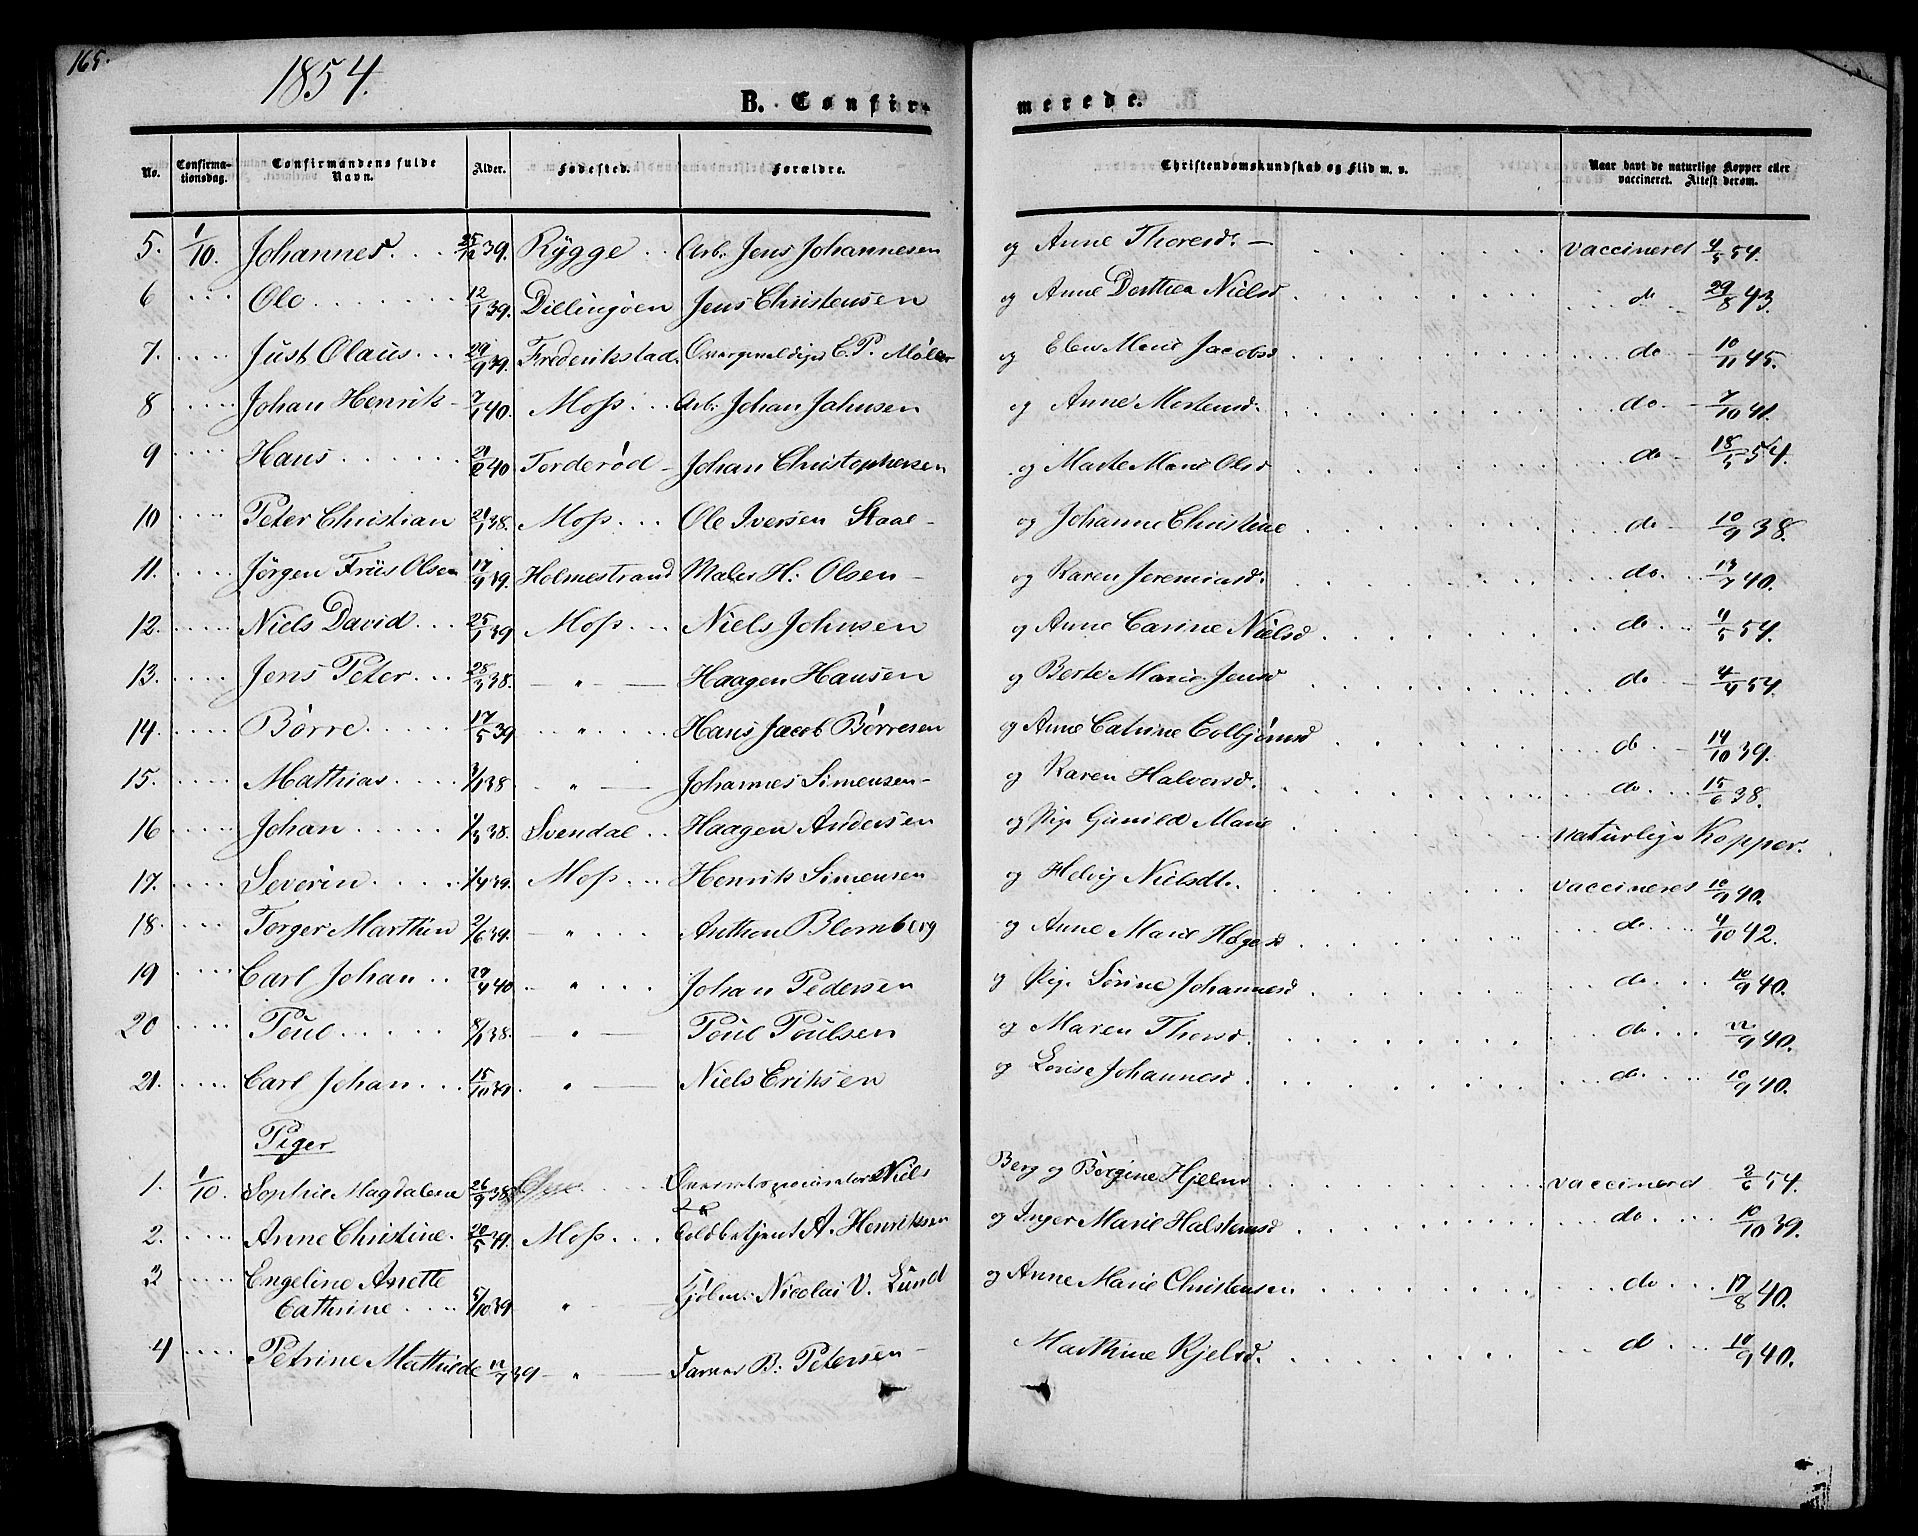 165.
1854.
B. Confir-
merede.
No. Confirma-tionsdag. Confirmandens fulde Navn. Alder. Fødested. Forældre. Christendomskundskab og Flid m. v. Naar havt de naturlige Kopper eller vaccineret. Attest derom.
5. 1/10. Johannes 25/12 39. Rygge Arb: Jens Johannesen og Anne Thoresd: vaccineret 4/5 54.
6 Ole 12/1 39. Dillingøen Jens Christensen og Anne Dorthea Nielsd do 29/8 43.
7. Just Olaus 29/9 39. Frederikstad. C. P. Møller og Elen Marie Jacobsd do 10/11 45.
8 Johan Henrik 7/1 40. Moss Arb: Johan Johnsen og Anne Mortensd. do. 7/10 41.
9 Hans 40 Torderød Johan Christophersen og Marte Marie Olsd do 18/5 54.
10 Peter Christian 38. Moss Ole Iversen Staal og Johanne Christine do 10/9 38.
11. Jørgen Friis Olsen 17/9 39. Holmestrand Maler H: Olsen og Karen Jeremiasd. do. 13/7 40.
12. Niels David 25/1 39 Moss Niels Johnsen og Anne Carine Nielsd do 4/5 54.
13. Jens Peter 28/3 38. " Haagen Hansen og Berte Marie Jensd do 4/4 54.
14. Børre 17/5 39 " Hans Jacob Børresen og Anne Catrine Colbjørnsd do 14/10 39.
15. Mathias 38 " Johannes Simensen og Karen Halvorsd. do 15/6 38.
16 Johan 1/3 38. Svendal Haagen Andersen og Pige Gunild Marie naturlige Kopper.
17. Severin 1/4 39. Moss Henrik Simensen og Helvig Nielsdt. vaccineret 10/9 40.
18. Torger Marthin 2/6 39. " Anthon Blomberg og Anne Marie do 4/10 42.
19 Carl Johan 40 " Johan Pedersen og Pige Sørine Johannesd do 10/9 40.
20 Poul 8/1 38. " Poul Poulsen og Maren Thorsd. do 22/9 40.
21. Carl Johan 15/10 39. " Niels Eriksen og Lovise Johannesd do 10/9 40.
Piger
1. 1/10. Sophie Magdalene 26/9 38 Niels Berg og Børgine Hjelm vaccinerd 2/6 54.
2. Anne Christine. 20/5 39. Moss Toldbetjent A. Henriksen og Inger Marie Halstensd do 10/10 39.
3 Engeline Anette
Cathrine 5/10 39 " Kjøbm: Nicolai V. Lund og Anne Marie Christensen do 17/8 40.
4 Petrine Mathilde 12/7 39 " Farver B: Petersen Marthine Kjelsd. do 10/9 40.